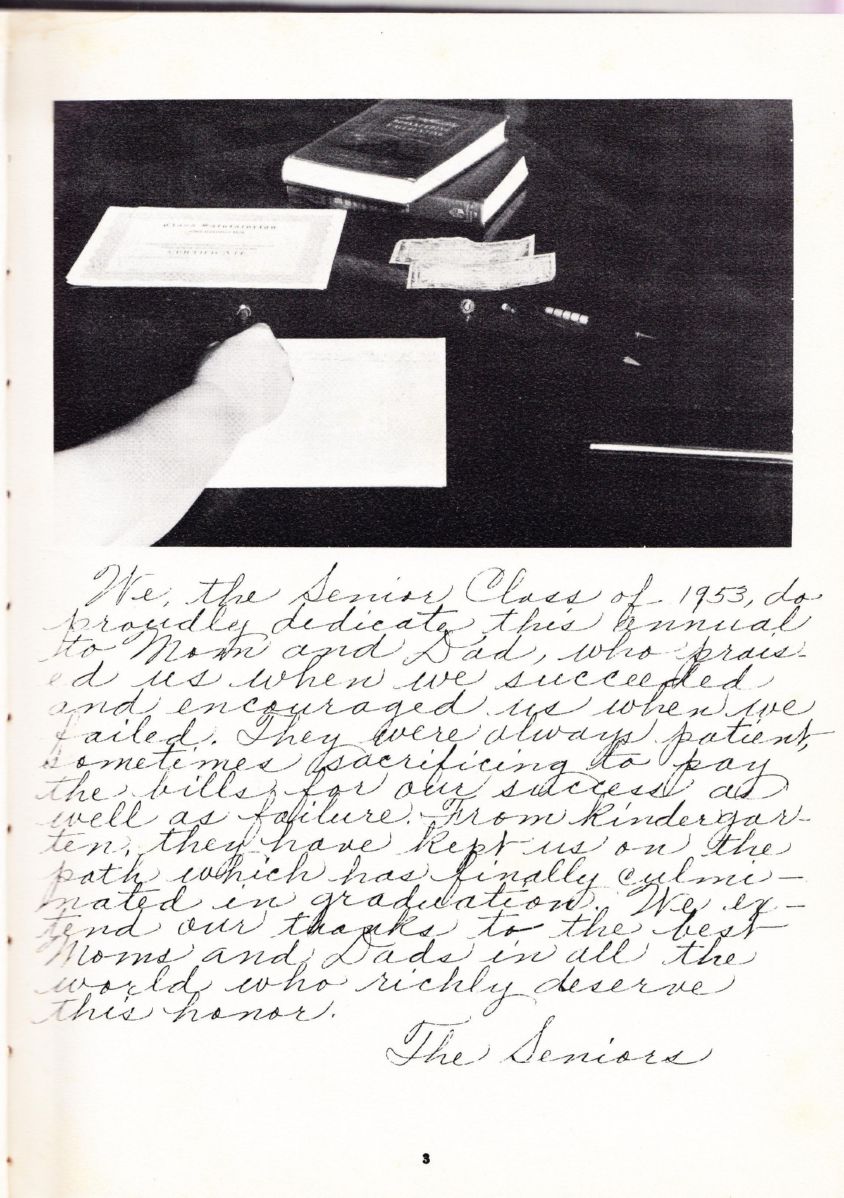 Class Salutatorian
CERTIFICATE
We, the Senior Class of 1953, do
proudly dedicate this annual
to Mom and Dad, who prais-
ed us when we succeeded
and encouraged us when we
failed. They were always patient,
sometimes sacrificing to pay
the bills for our success as
well as failure. From kindergar-
ten, they have kept us on the
path which has finally culmi-
nated in graduation. We ex-
tend our thanks to the best
Moms and Dads in all the
world who richly deserve
this honor.
The Seniors
3